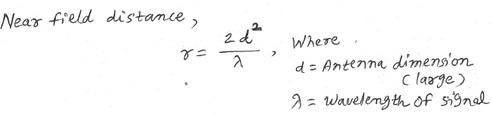 Near field distance,
r = 2d²/λ, Where
d = Antenna dimension
(large)
λ = Wavelength of signal